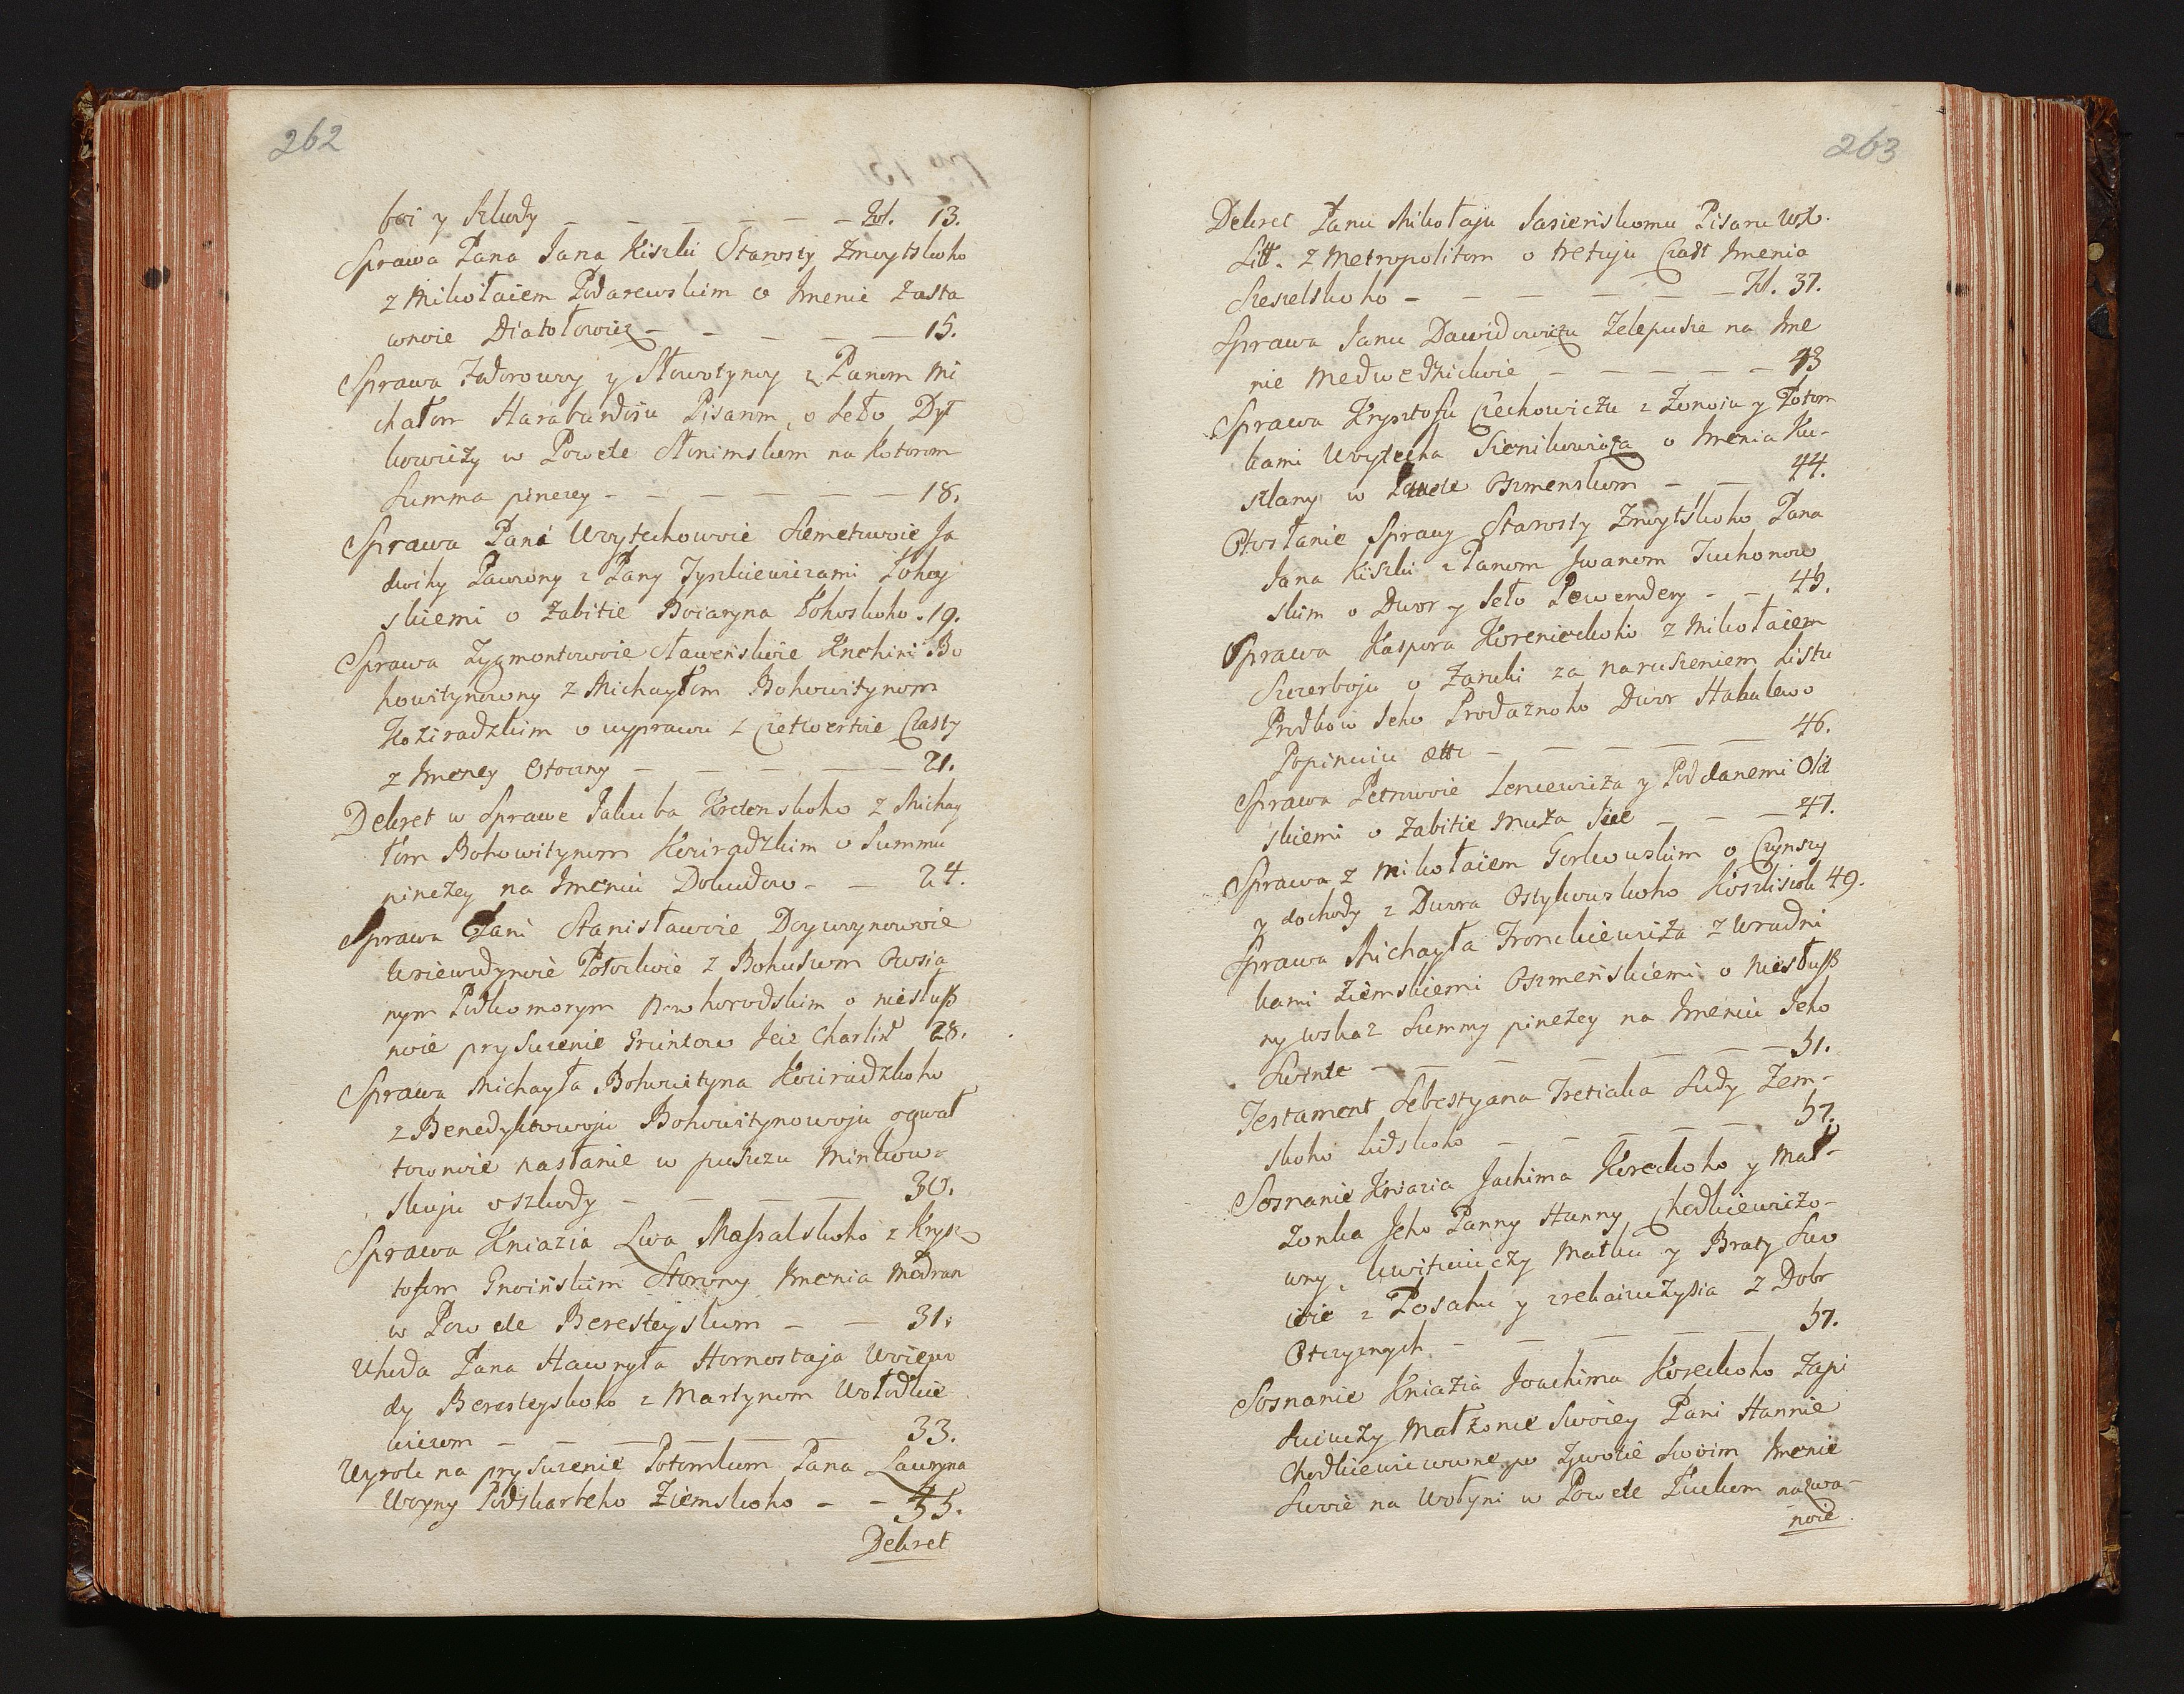 262
boi y Szkody – – – – – – fol. 13.
Sprawa Pana Jana Kiszki Starosty Zmoytskoho
z Mikołaiem Podarewskim o Imenie Zasta
wnoie Diatołowicz – – – – – 15.
Sprawa Fedorowoy y Słowotynoy z Panom Mi
chałom Haraburdoju Pisarom, o Seło Dyt
kowiczy w Powete Słonimskom na kotorom
Summa pinezey – – – – – – 18.
Sprawa Pani Woytechowoie Semetowoie Ja
dwihy Pacowny z Pany Tyszkiewiczami Łohoy
skiemi o Zabitie Boiaryna Łohoskoho. 19.
Sprawa Zygmontowoie Sławenskoie Knehini Bo
howitynowny z Michayłom Bohowitynom
Koziradzkim o wyprawu z Czetwertoie Czasty
z Imeney Otcowny – – – – – 21.
Dekret w Sprawe Jakuba Kretenskoho z Michay
łom Bohowitynom Koziradzkim o Summu
pinezey na Imeniu Dokudow – – 24.
Sprawa Pani Stanisławoie Doywoynowoie
Woiewodynoie Połockoie z Bohuszom Owsia
nym Podkomorym Nowhorodskim o niesłusz
noie prysuzenie Gruntow Jeie Charlin 28.
Sprawa Michayła Bohowityna Koziradzkoho
z Benedyktowoju Bohowitynowoju o gwał
townoie nasłanie w puszczu Minkow-
skuju o szkody – – – – – 30.
Sprawa Kniazia Lwa Massalskoho z Krysz
tofom Gnoińskim Storony Imenia Modran
w Powete Beresteyskom – – 31.
Uhoda Pana Hawryła Hornostaja Woiewo
dy Beresteyskoho z Martynom Wołodkie
wiczom – – – – – – 33.
Wyrok na prysuzenie Potomkom Pana Ławryna
Woyny Podskarbeho Ziemskoho – – 35.
Dekret
263
Dekret Panu Mikołaju Jasieńskomu Pisaru Wo.
Litt. z Metropolitom o tretuju Czast Imenia
Szeszelskoho – – – – – – fol. 37.
Sprawa Janu Dawidowiczu Zelepusze na Ime
nie Medwedzickoie – – – – – 43
Sprawa Krysztofa Czechowiczu z Zonoiu y Potom
kami Woytecha Sienikowicza o Imenia Ku-
szlany w Powete Oszmenskom – – 44.
Otosłanie Sprawy Starosty Zmoytskoho Pana
Jana Kiszki z Panom Iwanom Juchonow
skim o Dwor y Seło Powendery – – 45.
Sprawa Kaspora Koreniockoho z Mikołaiem
Szczerboju o Zaruki za naruszeniem Listu
Prodkow Jeho Prodaznoho Dwor Habulewo
Popinuiu ettc – – – – – 46.
Sprawa Petrowoie Leniewicza y Poddanemi Old
skiemi o Zabitie Muza Jeie – – – 47.
Sprawa z Mikołaiem Gorkowskim o Czynszy
y dochody z Dwora Ostykowskoho Koszliszok 49.
Sprawa Michayła Fronckiewicza z Wradni
kami Ziemskiemi Oszmeńskiemi o Niesłusz
ny wskaz Summy pinezey na Imeniu Jeho
Swinte – – – – – – 51.
Testament Sebestyana Tretiaka Sudy Zem-
skoho Lidskoho – – – – – 57.
Soznanie Kniazia Jachima Koreckoho y Mał-
zonka Jeho Panny Hanny Chodkiewiczo-
wny, kwituiuczy Matku y Braty Swo
ieie z Posahu y zrekaiuczysia z Dobr
Otczyznych – – – – – 57.
Soznanie Kniazia Joachima Koreckoho Zapi
suiuczy Małzonce Swoiey Pani Hannie
Chodkiewiczowne po Zywotie Swoim Imenie
Swoie na Wołyni w Powete Łuckom nazwa-
noie